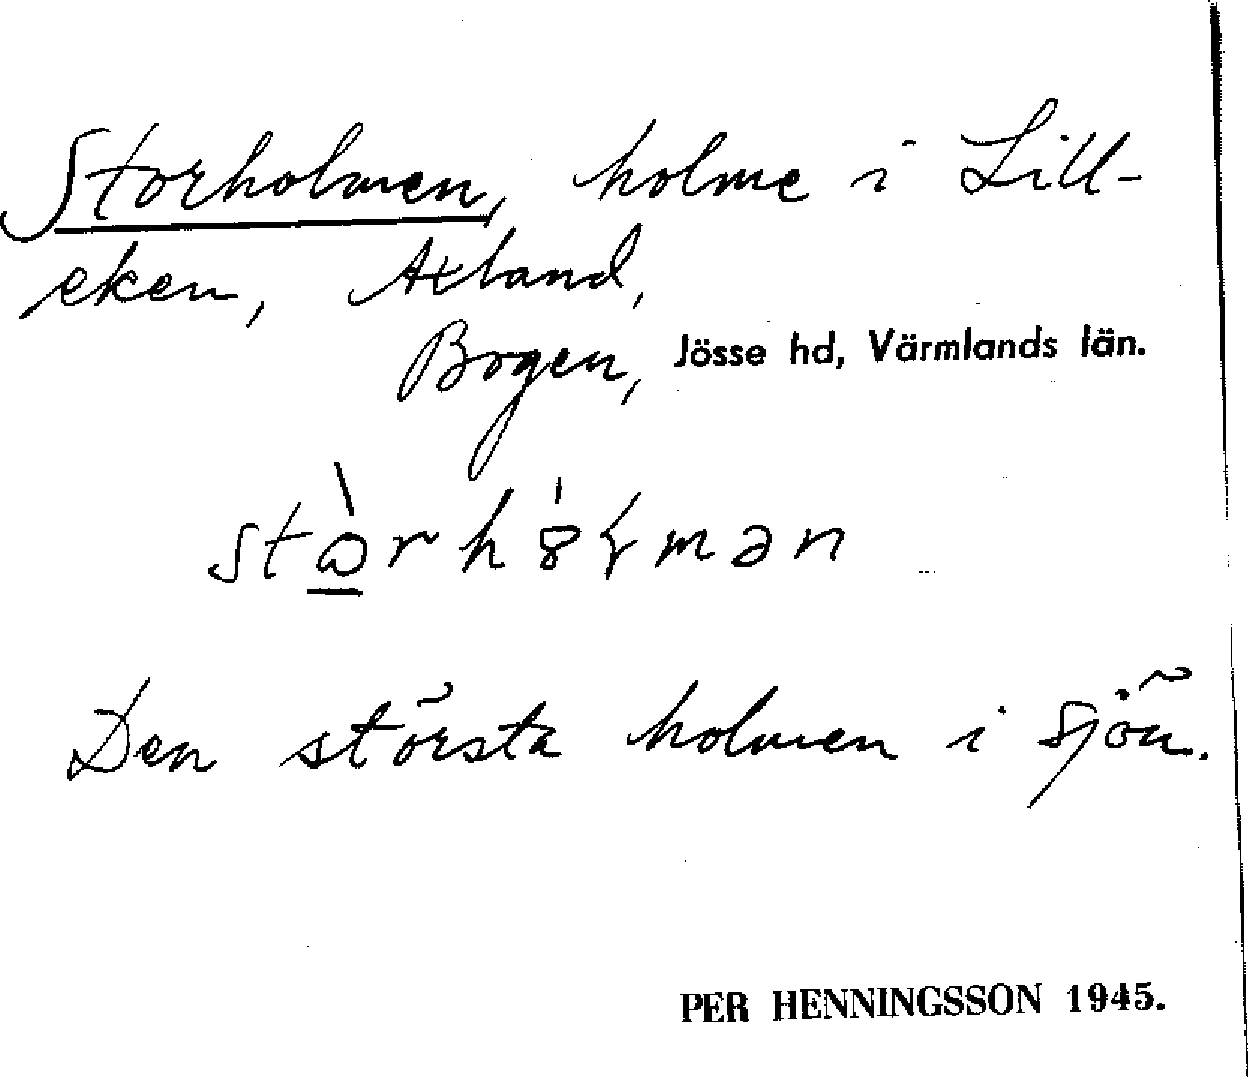 Storholmen, holme i Lill-
eken, Axland,
Bogen, Jösse hd, Värmlands län.
Den största holmen i sjön.
PER HENNINGSSON 1945.